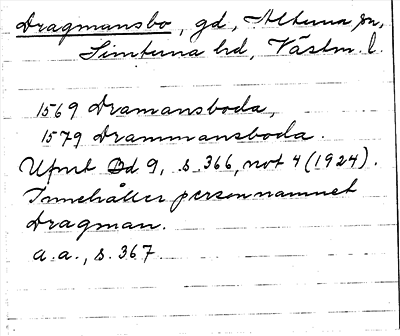 Dragmansbo, gd, Altuna sn,
Simtuna hd, Västm. l.
1569 Dramansboda,
1579 Drammansboda.
Ufmt Bd 9, s. 366, not 4 (1924).
Innehåller personnamnet
Dragman.
a.a., s. 367.